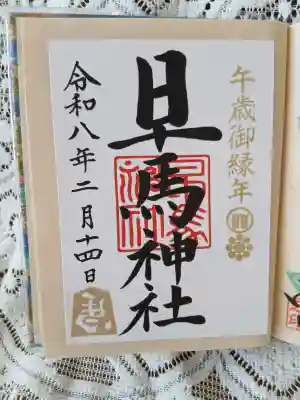 午歳御縁年
早馬神社
令和八年二月十四日